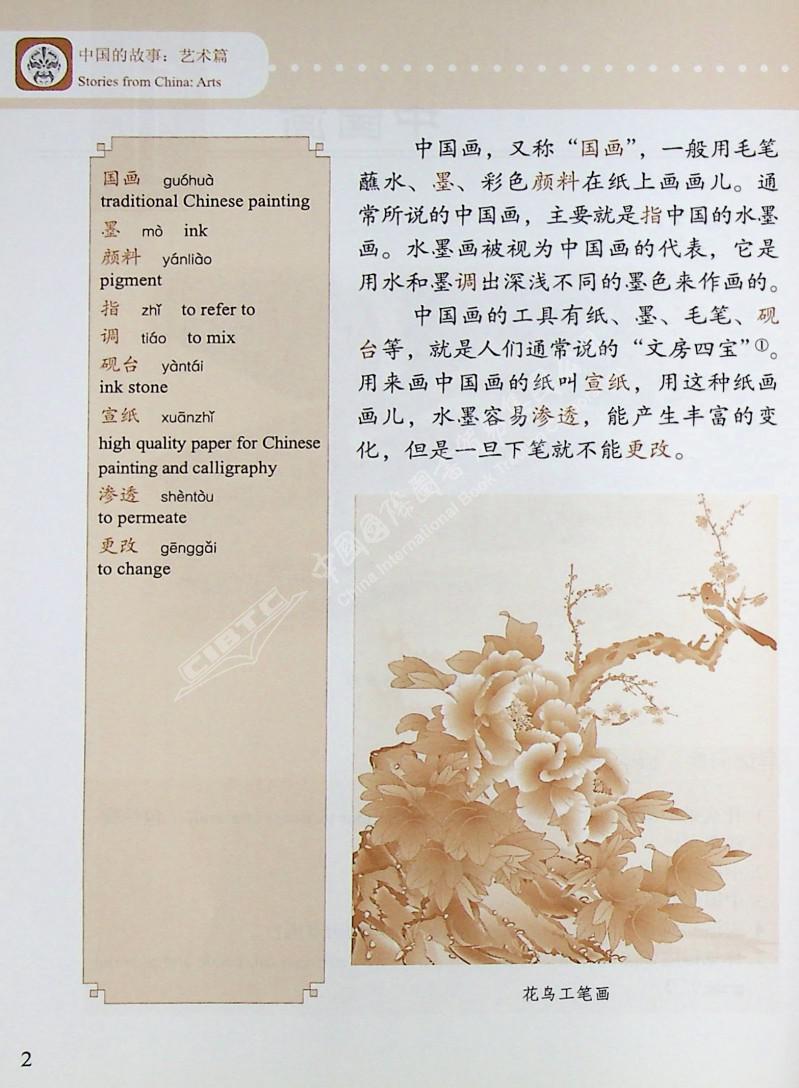 中国的故事：艺术篇
Stories from China: Arts
国画 guóhuà
traditional Chinese painting
墨 mò ink
颜料 yánliào
pigment
指 zhǐ to refer to
调 tiáo to mix
砚台 yàntái
ink stone
宣纸 xuānzhǐ
high quality paper for Chinese
painting and calligraphy
渗透 shèntòu
to permeate
更改 gēnggǎi
to change
中国画，又称“国画”，一般用毛笔
蘸水、墨、彩色颜料在纸上画画儿。通
常所说的中国画，主要就是指中国的水墨
画。水墨画被视为中国画的代表，它是
用水和墨调出深浅不同的墨色来作画的。
中国画的工具有纸、墨、毛笔、砚
台等，就是人们通常说的“文房四宝”①。
用来画中国画的纸叫宣纸，用这种纸画
画儿，水墨容易渗透，能产生丰富的变
化，但是一旦下笔就不能更改。
花鸟工笔画
2
CIBTC
中國國際圖書
China International Book